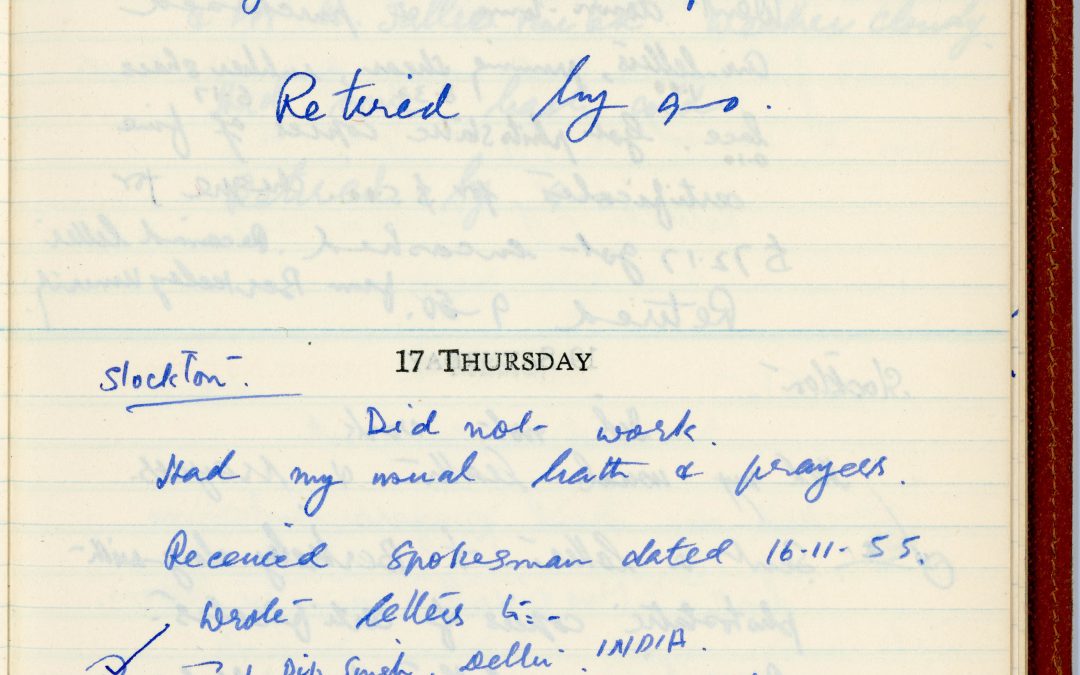 Retired by 9-0.
17 THURSDAY
Stockton.
Did not work.
Had my usual bath & prayers.
Received Spokesman dated 16-11-55.
Wrote letters to:-
Singh, Delhi. INDIA.